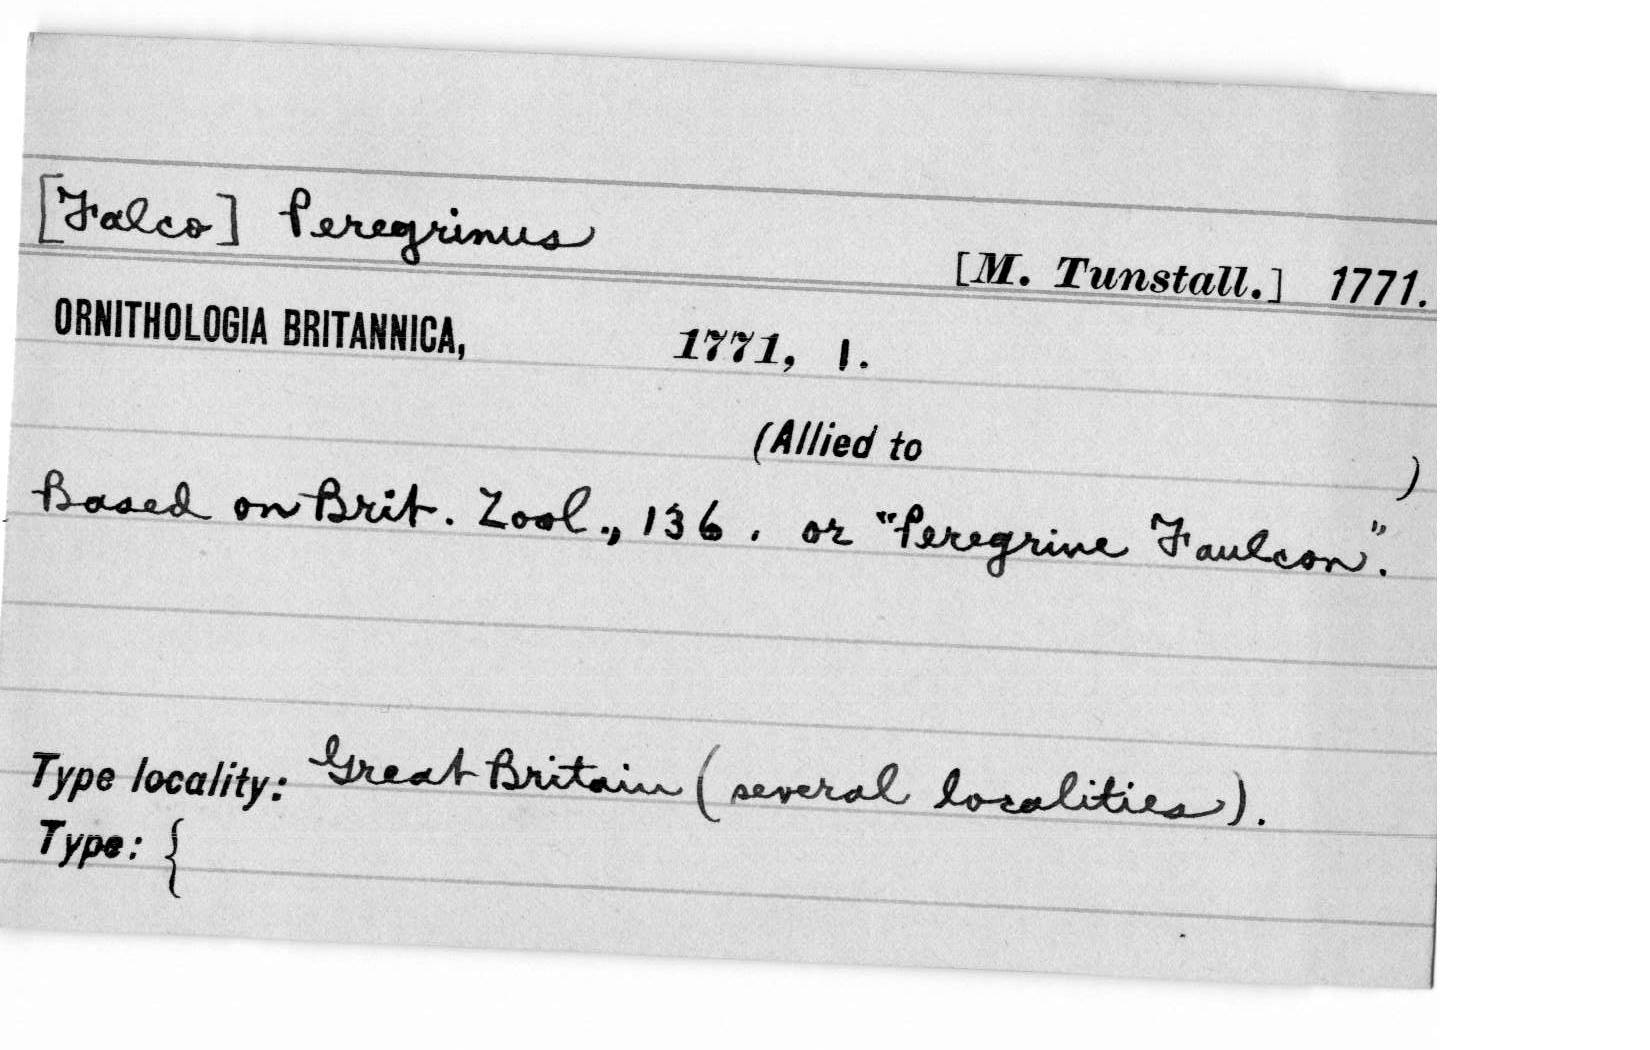 [Falco] Peregrinus
[M. Tunstall.] 1771.
ORNITHOLOGIA BRITANNICA, 1771, 1.
(Allied to )
Based on Brit. Zool., 136. or "Peregrine Faulcon".
Type locality: Great Britain (several localities).
Type: {